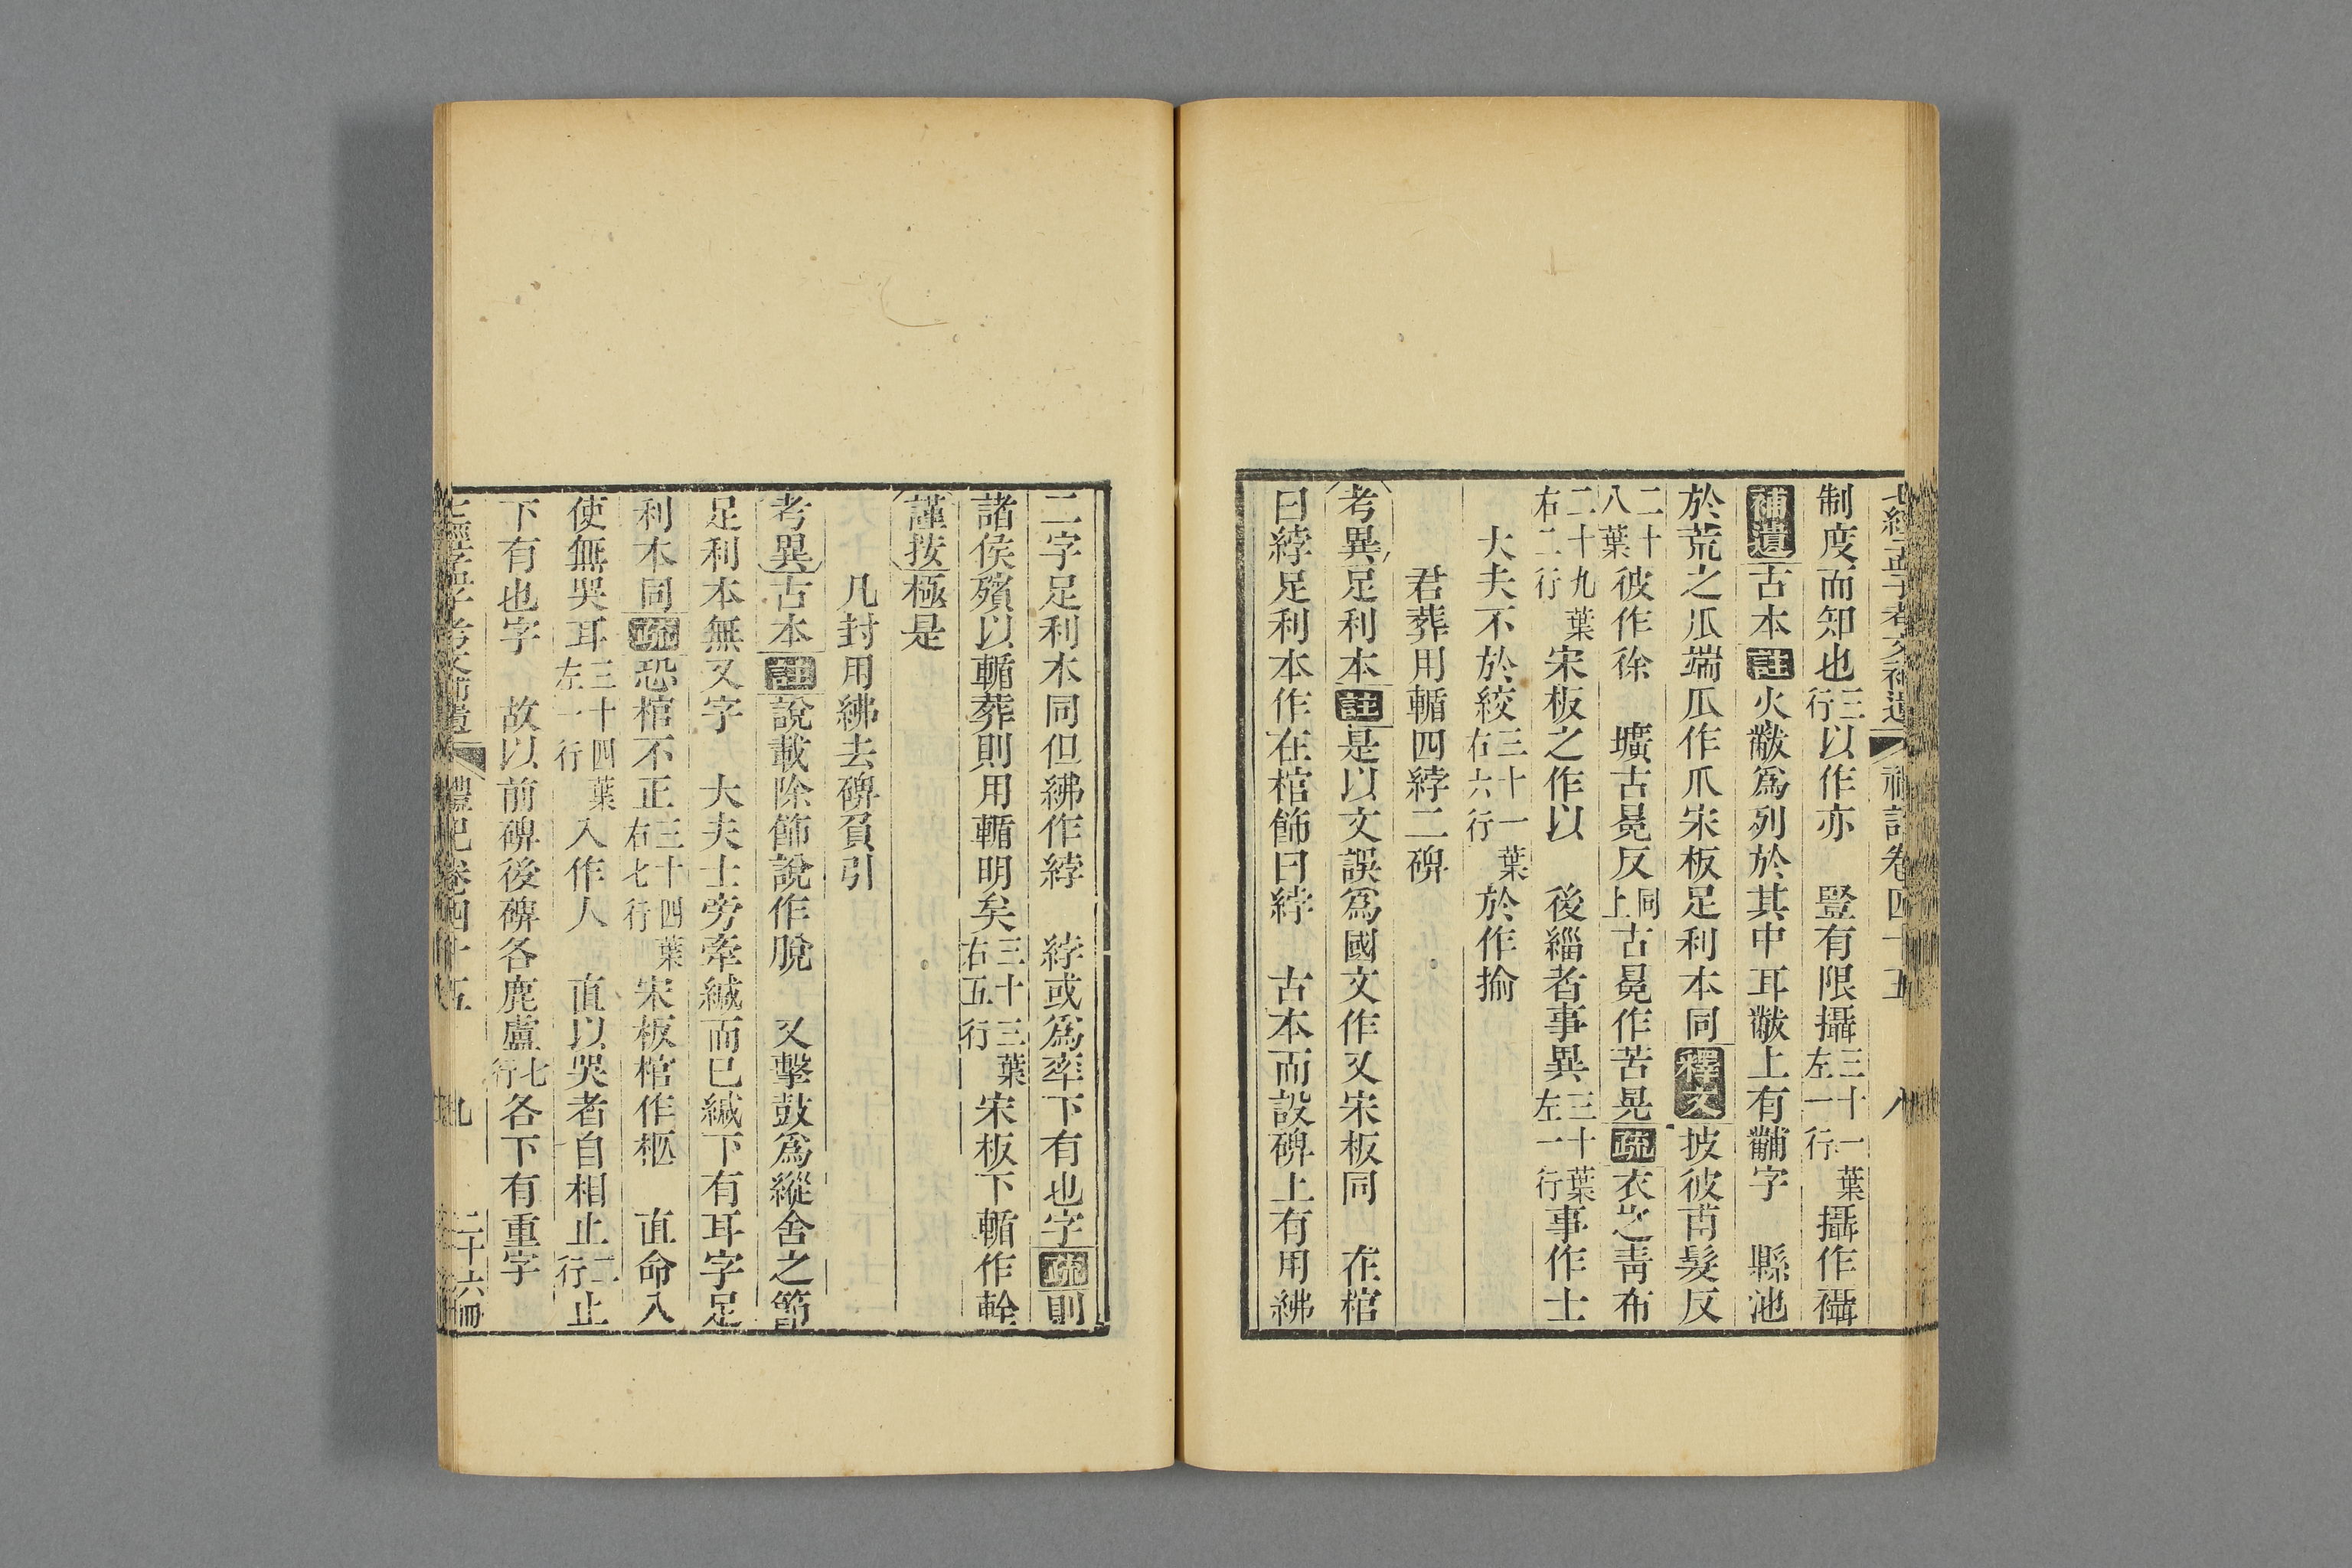 七經孟子考文補遺 禮記卷四十五 八
制度而知也三行以作亦 豎有限攝三十一葉左一行攝作襵
補遺古本註火黻爲列於其中耳黻上有黼字 縣池
於荒之爪端爪作爪宋板足利本同釋文披彼苖髮反
二十八葉彼作徐 壙古晃反同上古晃作苦晃疏衣以靑布
二十九葉右二行宋板之作以 後緇者事異三十葉左一行事作士
大夫不於絞三十一葉右六行於作揄
君葬用輴四綍二碑
考異足利本註是以文誤爲國文作又宋板同 在棺
曰綍足利本作在棺飾曰綍 古本而設碑上有用紼
二字足利本同但紼作綍 綍或爲率下有也字疏則
諸侯殯以輴葬則用輴明矣三十三葉右五行宋板下輴作輇
謹按極是
凡封用紼去碑負引
考異古本註說載除飾說作脫 又擊鼓爲縱舍之節
足利本無又字 大夫士旁牽緘而已緘下有耳字足
利本同疏恐棺不正三十四葉右七行宋板棺作柩 直命入
使無哭耳三十四葉左一行入作人 直以哭者自相止二行止
下有也字 故以前碑後碑各鹿盧七行各下有重字
七經孟子考文補遺 禮記卷四十五 九 二十六冊